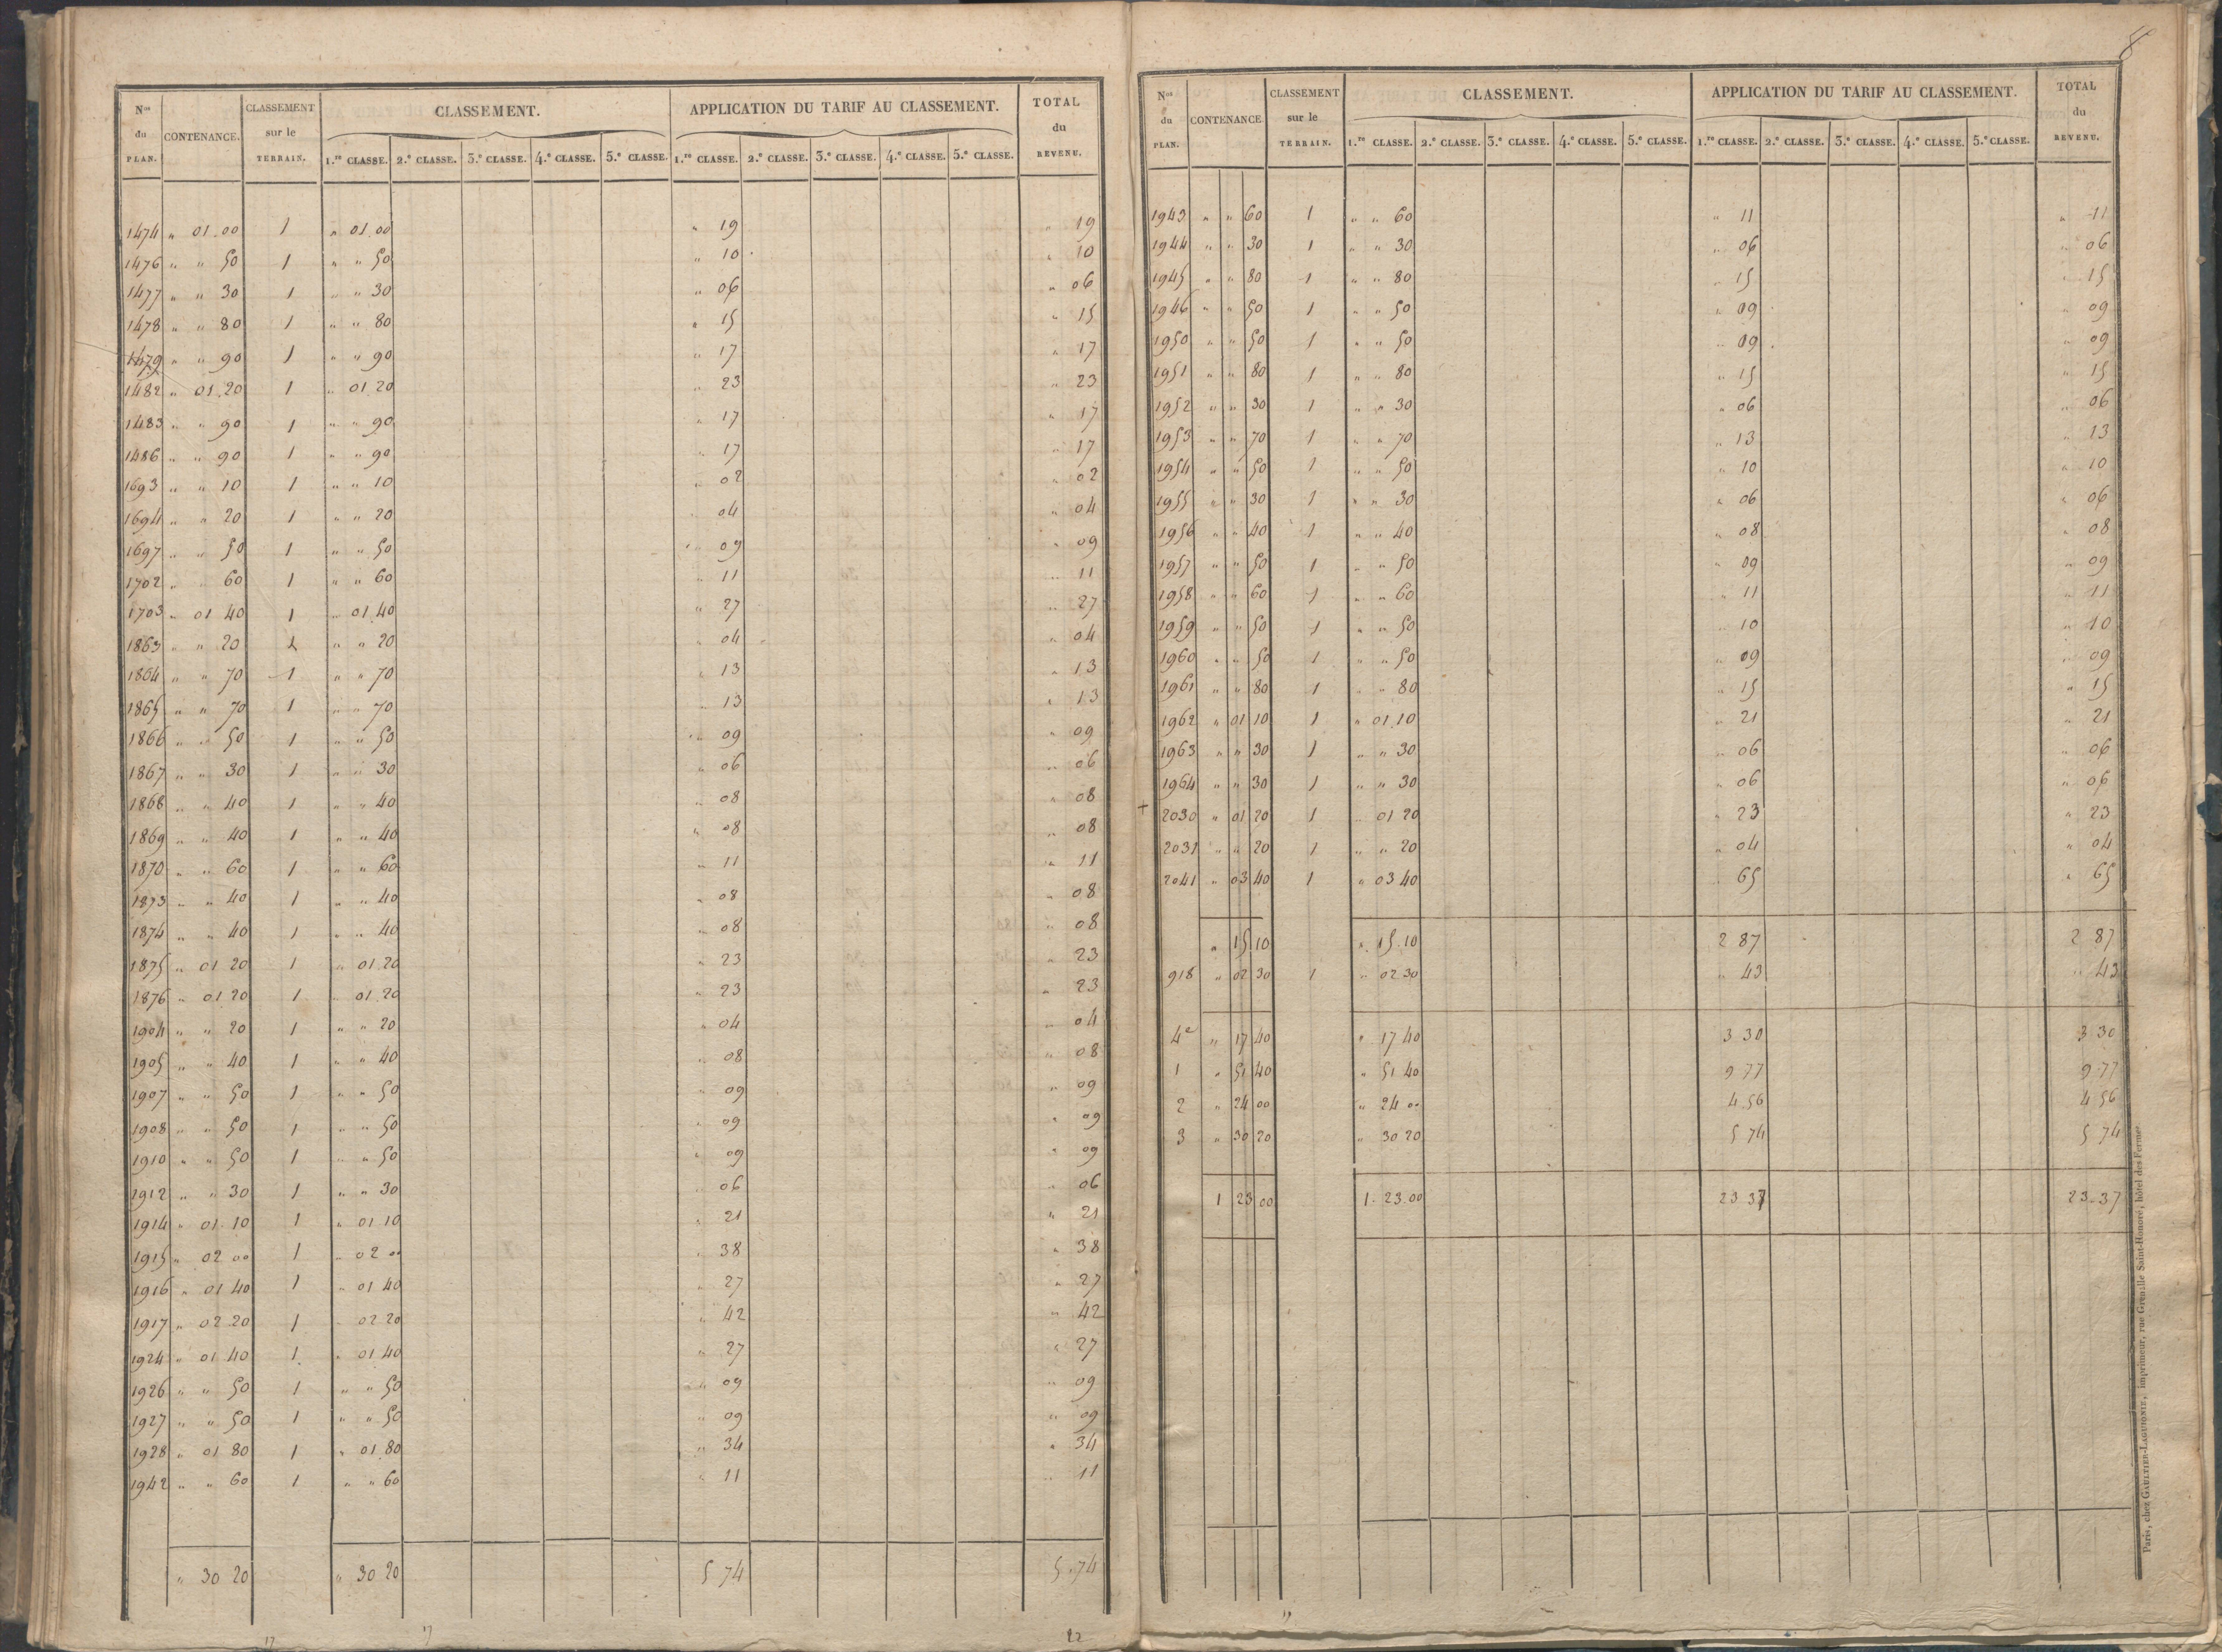 8
N.os du PLAN. CONTENANCE. CLASSEMENT sur le TERRAIN. CLASSEMENT. APPLICATION DU TARIF AU CLASSEMENT. TOTAL du REVENU.
1.re CLASSE. 2.e CLASSE. 3.e CLASSE. 4.e CLASSE. 5.e CLASSE. 1.re CLASSE. 2.e CLASSE. 3.e CLASSE. 4.e CLASSE. 5.e CLASSE.
1474 " 01.00 1 " 01.00 " 19 " 19
1476 " " 50 1 " " 50 " 10 " 10
1477 " " 30 1 " " 30 " 06 " 06
1478 " " 80 1 " " 80 " 15 " 15
1479 " " 90 1 " " 90 " 17 " 17
1482 " 01.20 1 " 01 20 " 23 " 23
1483 " " 90 1 " " 90 " 17 " 17
1486 " " 90 1 " " 90 " 17 " 17
1693 " " 10 1 " " 10 " 02 " 02
1694 " " 20 1 " " 20 " 04 " 04
1697 " " 50 1 " " 50 " 09 " 09
1702 " " 60 1 " " 60 " 11 " 11
1703 " 01 40 1 " 01.40 " 27 " 27
1863 " " 20 1 " " 20 " 04 " 04
1864 " " 70 1 " " 70 " 13 " 13
1865 " " 70 1 " " 70 " 13 " 13
1866 " " 50 1 " " 50 " 09 " 09
1867 " " 30 1 " " 30 " 06 " 06
1868 " " 40 1 " " 40 " 08 " 08
1869 " " 40 1 " " 40 " 08 " 08
1870 " " 60 1 " " 60 " 11 " 11
1873 " " 40 1 " " 40 " 08 " 08
1874 " " 40 1 " " 40 " 08 " 08
1875 " 01 20 1 " 01.20 " 23 " 23
1876 " 01.20 1 " 01.20 " 23 " 23
1904 " " 20 1 " " 20 " 04 " 04
1905 " " 40 1 " " 40 " 08 " 08
1907 " " 50 1 " " 50 " 09 " 09
1908 " " 50 1 " " 50 " 09 " 09
1910 " " 50 1 " " 50 " 09 " 09
1912 " " 30 1 " " 30 " 06 " 06
1914 " 01.10 1 " 01 10 " 21 " 21
1915 " 02 00 1 " 02 00 " 38 " 38
1916 " 01 40 1 " 01 40 " 27 " 27
1917 " 02.20 1 " 02 20 " 42 " 42
1924 " 01.40 1 " 01 40 " 27 " 27
1926 " " 50 1 " " 50 " 09 " 09
1927 " " 50 1 " " 50 " 09 " 09
1928 " 01 80 1 " 01.80 " 34 " 34
1942 " " 60 1 " " 60 " 11 " 11
" 30 20 " 30 20 5 74 5.74
N.os du PLAN. CONTENANCE. CLASSEMENT sur le TERRAIN. CLASSEMENT. APPLICATION DU TARIF AU CLASSEMENT. TOTAL du REVENU.
1.re CLASSE. 2.e CLASSE. 3.e CLASSE. 4.e CLASSE. 5.e CLASSE. 1.re CLASSE. 2.e CLASSE. 3.e CLASSE. 4.e CLASSE. 5.e CLASSE.
1943 " " 60 1 " " 60 " 11 " 11
1944 " " 30 1 " " 30 " 06 " 06
1945 " " 80 1 " " 80 " 15 " 15
1946 " " 50 1 " " 50 " 09 " 09
1950 " " 50 1 " " 50 " 09 " 09
1951 " " 80 1 " " 80 " 15 " 15
1952 " " 30 1 " " 30 " 06 " 06
1953 " " 70 1 " " 70 " 13 " 13
1954 " " 50 1 " " 50 " 10 " 10
1955 " " 30 1 " " 30 " 06 " 06
1956 " " 40 1 " " 40 " 08 " 08
1957 " " 50 1 " " 50 " 09 " 09
1958 " " 60 1 " " 60 " 11 " 11
1959 " " 50 1 " " 50 " 10 " 10
1960 " " 50 1 " " 50 " 09 " 09
1961 " " 80 1 " " 80 " 15 " 15
1962 " 01 10 1 " 01.10 " 21 " 21
1963 " " 30 1 " " 30 " 06 " 06
1964 " " 30 1 " " 30 " 06 " 06
+ 2030 " 01 20 1 " 01 20 " 23 " 23
2031 " " 20 1 " " 20 " 04 " 04
2041 " 03 40 1 " 03 40 " 65 " 65
" 15 10 " 15.10 2 87 2 87
918 " 02 30 1 " 02 30 " 43 " 43
4e " 17 40 " 17 40 3 30 3 30
1 " 51 40 " 51 40 9 77 9 77
2 " 24 00 " 24 00 4.56 4 56
3 " 30 20 " 30 20 5 74 5 74
1 23 00 1. 23.00 23 37 23.37
Paris, chez GAULTIER-LAGUIONIE, imprimeur, rue Grenelle Saint-Honoré, hôtel des Fermes